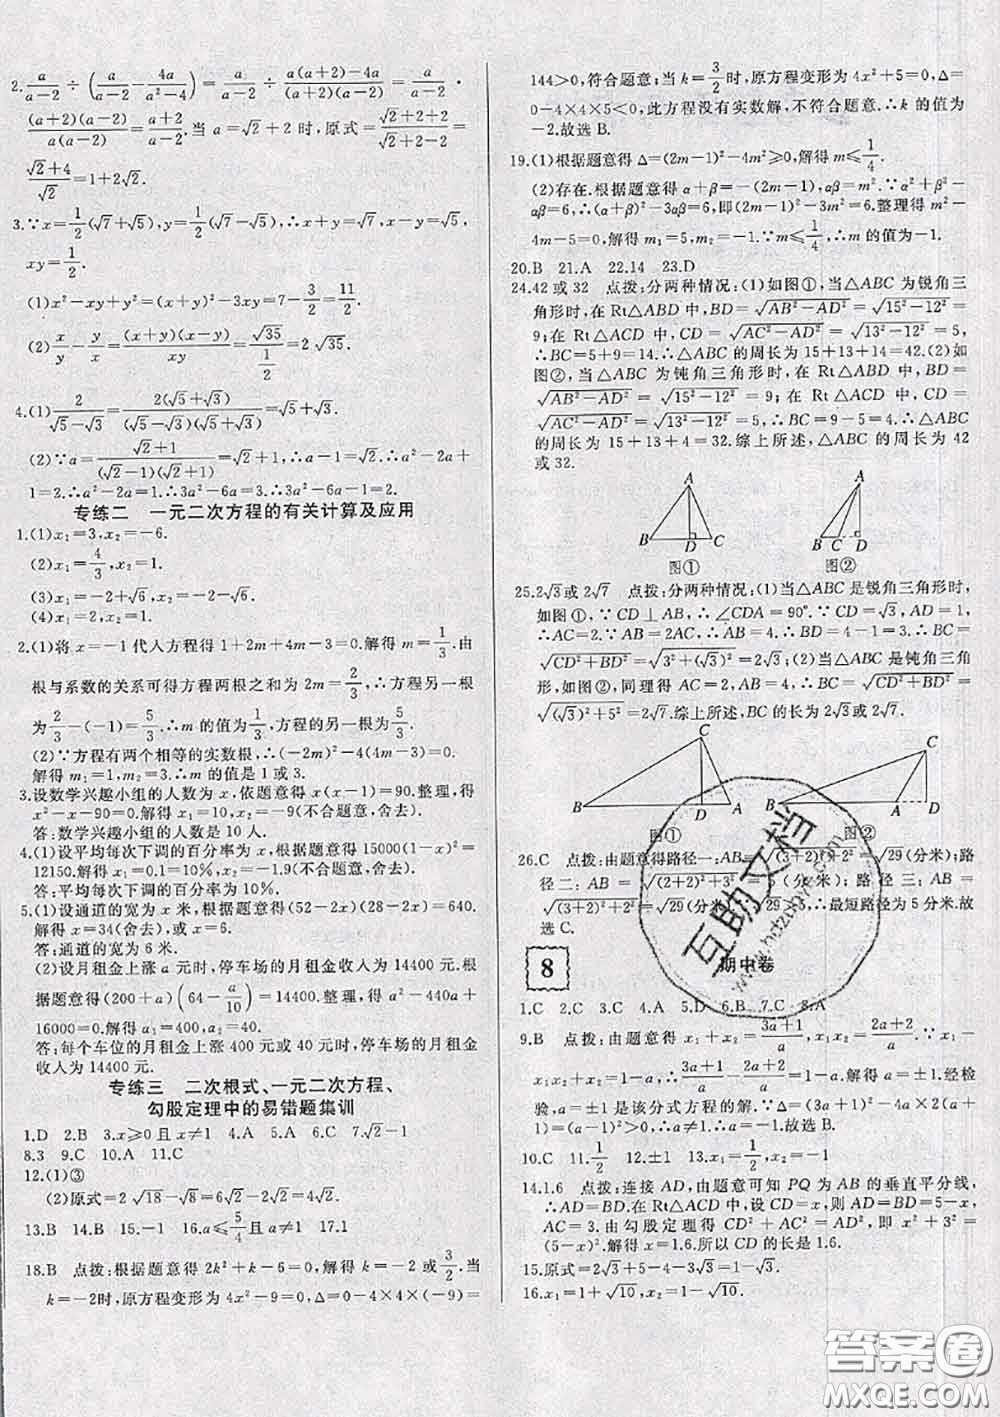 2. a/(a-2) ÷ (a/(a-2) - 4a/(a²-4)) = a/(a-2) ÷ (a(a+2)-4a)/((a+2)(a-2)) = a/(a-2) ·
(a+2)(a-2)/(a(a-2)) = (a+2)/(a-2).当 a=√2+2时,原式=(√2+2+2)/(√2+2-2)=
(√2+4)/√2=1+2√2.
3.∵x=1/2(√7+√5),y=1/2(√7-√5),∴x+y=√7,x-y=√5,
xy=1/2.
(1)x²-xy+y²=(x+y)²-3xy=7-3/2=11/2.
(2)x/y-y/x=(x+y)(x-y)/xy=√35/(1/2)=2√35.
4.(1)2/(√5-√3)=2(√5+√3)/((√5-√3)(√5+√3))=√5+√3.
(2)∵a=(√2+1)/((√2-1)(√2+1))=√2+1,∴a-1=√2.∴a²-2a+
1=2.∴a²-2a=1.∴3a²-6a=3.∴3a²-6a-1=2.
专练二 一元二次方程的有关计算及应用
1.(1)x₁=3,x₂=-6.
(2)x₁=4/3,x₂=2.
(3)x₁=-2+√6,x₂=-2-√6.
(4)x₁=2,x₂=1.
2.(1)将 x=-1 代人方程得 1+2m+4m-3=0.解得 m=1/3.由
根与系数的关系可得方程两根之和为 2m=2/3,∴方程另一根
为2/3-(-1)=5/3.∴m 的值为1/3,方程的另一根为5/3.
(2)∵方程有两个相等的实数根,∴(-2m)²-4(4m-3)=0.
解得 m₁=1,m₂=3.∴m 的值是 1 或 3.
3.设数学兴趣小组的人数为 x,依题意得 x(x-1)=90.整理,得
x²-x-90=0.解得 x₁=10,x₂=-9(不合题意,舍去).
答:数学兴趣小组的人数是 10 人.
4.(1)设平均每次下调的百分率为 x,根据题意得 15000(1-x)²=
12150.解得 x₁=0.1=10%,x₂=-1.9(不合题意,舍去).
答:平均每次下调的百分率为 10%.
5.(1)设通道的宽为 x 米,根据题意得(52-2x)(28-2x)=640.
解得 x=34(舍去),或 x=6.
答:通道的宽为 6 米.
(2)设月租金上涨 a 元,停车场的月租金收入为 14400 元.根
据题意得(200+a)(64-a/10)=14400.整理,得 a²-440a+
16000=0.解得 a₁=400,a₂=40.
答:每个车位的月租金上涨 400 元或 40 元时,停车场的月租金
收入为 14400 元.
专练三 二次根式、一元二次方程、
勾股定理中的易错题集训
1.D 2.B 3.x⩾0 且 x≠1 4.A 5.A 6.C 7.√2-1
8.3 9.C 10.A 11.C
12.(1)③
(2)原式=2√18-√8=6√2-2√2=4√2.
13.B 14.B 15.-1 16.a⩽5/4且 a≠1 17.1
18.B 点拨:根据题意得 2k²+k-6=0,解得 k=-2 或3/2.当
k=-2时,原方程变形为 4x²-9=0,Δ=0-4×4×(-9)=
144>0,符合题意;当 k=3/2时,原方程变形为 4x²+5=0,Δ=
0-4×4×5<0,此方程没有实数解,不符合题意.∴k 的值为
-2.故选 B.
19.(1)根据题意得 Δ=(2m-1)²-4m²⩾0,解得 m⩽1/4.
(2)存在.根据题意得 α+β=-(2m-1),αβ=m².∵α²+β²-
αβ=6,∴(α+β)²-3αβ=6,即(2m-1)²-3m²=6.整理得 m²-
4m-5=0,解得 m₁=5,m₂=-1.∵m⩽1/4,∴m的值为-1.
20.B 21.A 22.14 23.D
24.42 或 32 点拨:分两种情况:(1)如图①,当△ABC 为锐角三
角形时,在 Rt△ABD 中,BD=√(AB²-AD²)=√(15²-12²)=
9;在 Rt△ACD 中,CD=√(AC²-AD²)=√(13²-12²)=5,
∴BC=5+9=14.∴△ABC 的周长为 15+13+14=42.(2)如
图②,当△ABC 为钝角三角形时,在 Rt△ABD 中,BD=
√(AB²-AD²)=√(15²-12²)=9;在 Rt△ACD 中,CD=
√(AC²-AD²)=√(13²-12²)=5,∴BC=9-5=4.∴△ABC
的周长为 15+13+4=32.综上所述,△ABC 的周长为 42
或 32.
A A
B D C B C D
图① 图②
25.2√3或 2√7 点拨:分两种情况:(1)当△ABC 是锐角三角形时,
如图①,∵CD⊥AB,∴∠CDA=90°.∵CD=√3,AD=1,
∴AC=2.∵AB=2AC,∴AB=4.∴BD=4-1=3.∴BC=
√(CD²+BD²)=√(3²+(√3)²)=2√3;(2)当△ABC 是钝角三角
形,如图②,同理得 AC=2,AB=4.∴BC=√(CD²+BD²)=
√((√3)²+5²)=2√7.综上所述,BC 的长为 2√3或 2√7.
C C
B D A B A D
图① 图②
26.C 点拨:由题意得路径一:AB=√((3+2)²+2²)=√29(分米);路
径二:AB=√((2+2)²+3²)=5(分米);路径三:AB=
√((3+2)²+2²)=√29(分米).∵√29>5,∴最短路径为 5 分米.故
选 C.
8 期中卷
1.C 2.C 3.C 4.A 5.D 6.B 7.C 8.A
9.B 点拨:由题意得 x₁+x₂=(3a+1)/a,x₁x₂=(2a+2)/a.∵x₁-
x₁x₂+x₂=1-a,∴(3a+1)/a-(2a+2)/a=1-a.解得 a=±1.经检
验,a=±1 是该分式方程的解.∵Δ=(3a+1)²-4a(2a+2)=
(a-1)²>0,∴a≠1.∴a=-1.故选 B.
10.C 11.1/2 12.±1 13.x₁=1/2,x₂=1
14.1.6 点拨:连接 AD,由题意可知 PQ 为 AB 的垂直平分线,
∴AD=BD.在 Rt△ACD 中,设 CD=x,则 AD=BD=5-x,
AC=3.由勾股定理得 CD²+AC²=AD²,即 x²+3²=
(5-x)².解得 x=1.6.所以 CD 的长是 1.6.
15.原式=2√3+5-4√3=5-2√3.
16.x₁=1+√10,x₂=1-√10.
互助文档
www.hdzuoye.com
答案圈
MXQE.COM